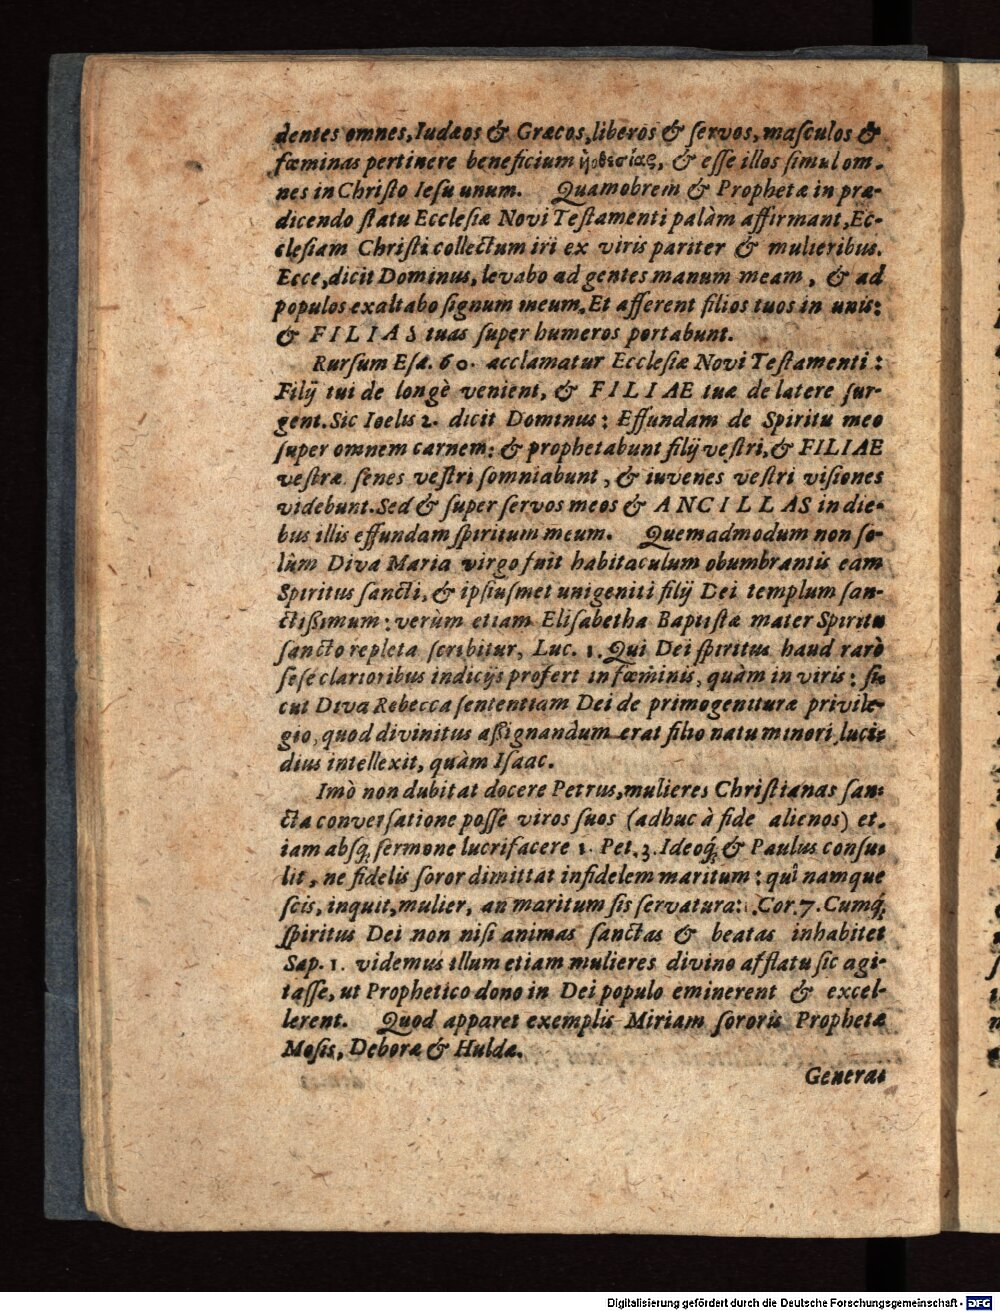 dentes omnes, Iudæos & Græcos, liberos & ſervos, maſculos &
fœminas pertinere beneficium ὑιοθεσίας, & eſſe illos ſimul om-
nes in Chriſto Ieſu unum. Quamobrem & Prophetæ in præ-
dicendo ſtatu Eccleſiæ Novi Teſtamenti palàm affirmant, Ec-
cleſiam Chriſti collectum iri ex viris pariter & mulieribus.
Ecce, dicit Dominus, levabo ad gentes manum meam, & ad
populos exaltabo ſignum meum. Et afferent filios tuos in unis:
& FILIAS tuas ſuper humeros portabunt.
Rurſum Eſa. 60. acclamatur Eccleſiæ Novi Teſtamenti:
Filij tui de longè venient, & FILIAE tuæ de latere ſur-
gent. Sic Ioelis 2. dicit Dominus: Effundam de Spiritu meo
ſuper omnem carnem: & prophetabunt filij veſtri, & FILIAE
veſtræ. ſenes veſtri ſomniabunt, & iuvenes veſtri viſiones
videbunt. Sed & ſuper ſervos meos & ANCILLAS in die-
bus illis effundam ſpiritum meum. Quemadmodum non ſo-
lùm Diva Maria virgo fuit habitaculum obumbrantis eam
Spiritus ſancti, & ipſiuſmet unigeniti filij Dei templum ſan-
ctiſſimum: verùm etiam Eliſabetha Baptiſtæ mater Spiritu
ſancto repleta ſcribitur, Luc. 1. Qui Dei ſpiritus haud rarò
ſeſe clarioribus indicijs profert in fœminis, quàm in viris: ſi-
cut Diva Rebecca ſententiam Dei de primogenituræ privile-
gio, quod divinitus aſſignandum erat filio natu minori, luci-
dius intellexit, quàm Iſaac.
Imò non dubitat docere Petrus, mulieres Chriſtianas ſan-
cta converſatione poſſe viros ſuos (adhuc à fide alienos) et-
iam abſq; ſermone lucrifacere 1. Pet. 3. Ideoq; & Paulus conſu-
lit, ne fidelis ſoror dimittat infidelem maritum: quî namque
ſcis, inquit, mulier, an maritum ſis ſervatura: 1. Cor. 7. Cumq;
ſpiritus Dei non niſi animas ſanctas & beatas inhabitet
Sap. 1. videmus illum etiam mulieres divino afflatu ſic agi-
taſſe, ut Prophetico dono in Dei populo eminerent & excel-
lerent. Quod apparet exemplis Miriam ſororis Prophetæ
Moſis, Deboræ & Huldæ.
Genera-
Digitalisierung gefördert durch die Deutsche Forschungsgemeinschaft - DFG